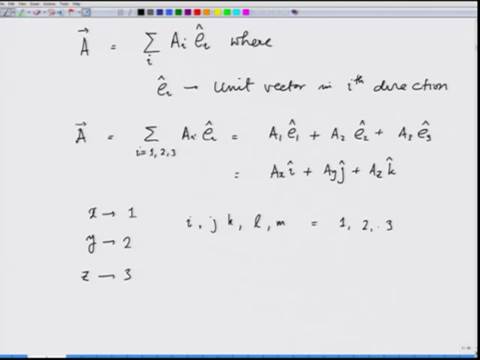 \vec{A} = \sum_{i} A_i \hat{e}_i where
\hat{e}_i → Unit vector in i^{th} direction
\vec{A} = \sum_{i=1,2,3} A_i \hat{e}_i = A_1 \hat{e}_1 + A_2 \hat{e}_2 + A_3 \hat{e}_3
= A_x \hat{i} + A_y \hat{j} + A_z \hat{k}
x → 1
i, j k, l, m = 1, 2, 3
y → 2
z → 3